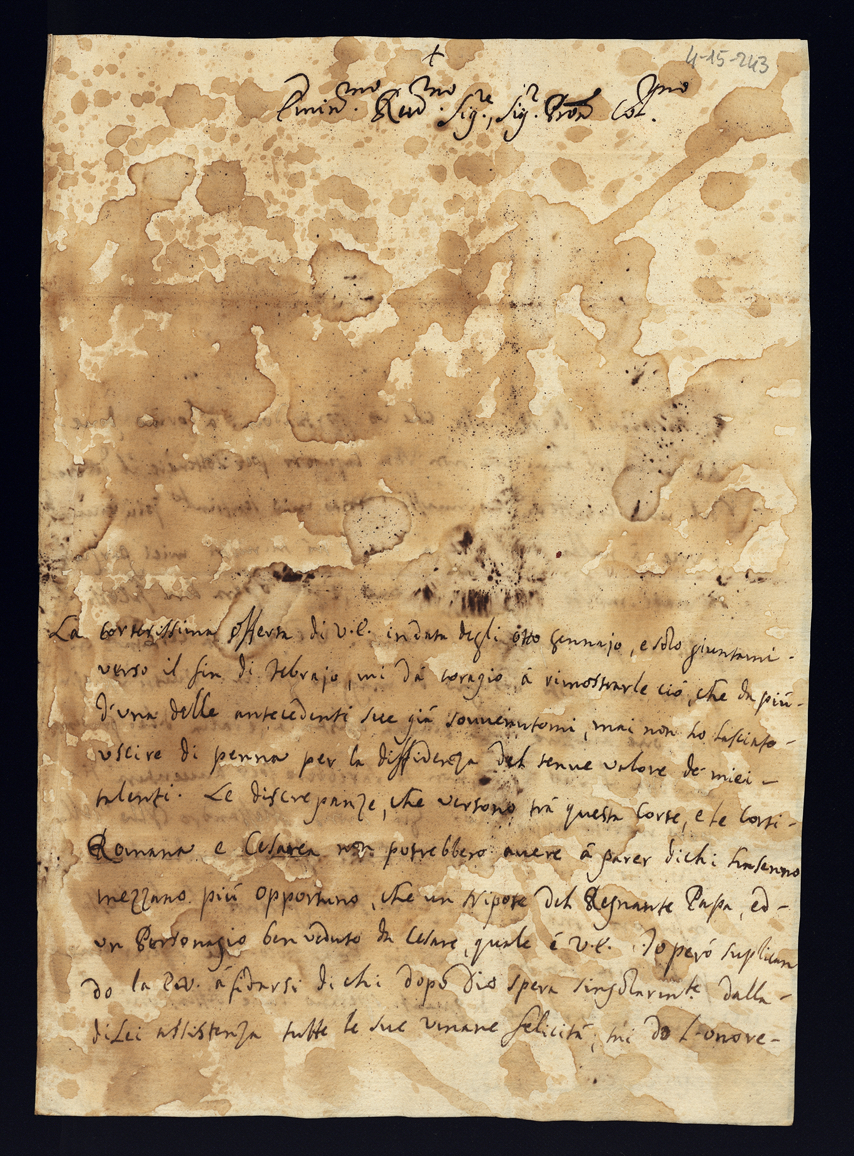 4-15-243
+
Emin.mo Rev.mo Sig.re, Sig.r Pron Col.mo
La cortesissima offerta di V.E. in data degli otto gennajo, e solo giuntami -
verso il fin di Febrajo, mi dà coragio à rimostrarle ciò, che da più -
d'una delle antecedenti sue già souuenutomi, mai non ho lasciato -
uscire di penna per la diffidenza del tenue valore de miei -
talenti. Le discrepanze, che versono trà questa Corte, e le Corti -
Romana e Cesarea non potrebbero auere à parer di chi
mezzano più opportuno, che un Nipote del Regnante Papa, ed -
un Personagio ben ueduto da Cesare, quale è V.E. Io però suplican
do la à fidarsi di chi dopò Dio spera singolarm.te dalla -
di Lei assistenza tutte le sue umane felicità, mi do l'onore -